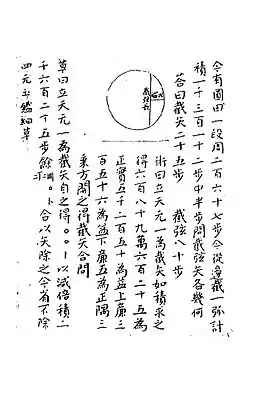 今有圓田一段周二百六十七步令從邊截一弧計
積一千三百一十二步中半步問截弦矢各幾何
答曰截矢二十五步　截弦八十步
術曰立天元一為截矢如積求之
得六百八十九萬六百二十五為
正實五千二百五十為益上廉三
百五十六為益下廉五為正隅三
乘方開之得截矢合問
草曰立天元一為截矢自之得。。卜以減倍積二
千六百二十五步餘。卜合以矢除之今省不除
四元玉鑑細草